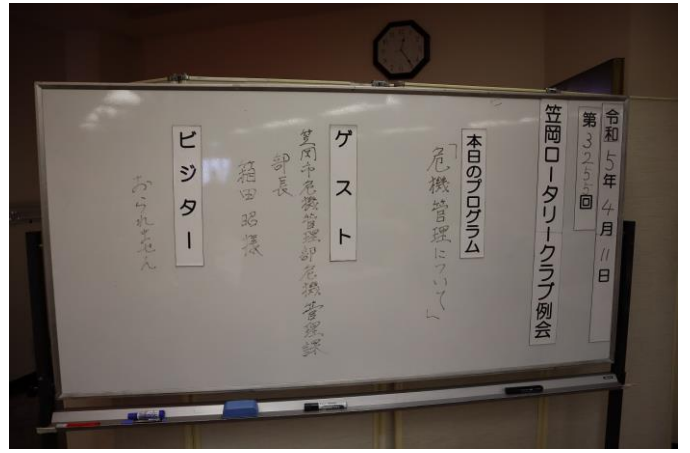 令和5年4月11日
第3255回
笠岡ロータリークラブ例会
本日のプログラム
「危機管理について」
ゲスト
笠岡市危機管理部危機管理課
部長
箱田昭様
ビジター
おられません